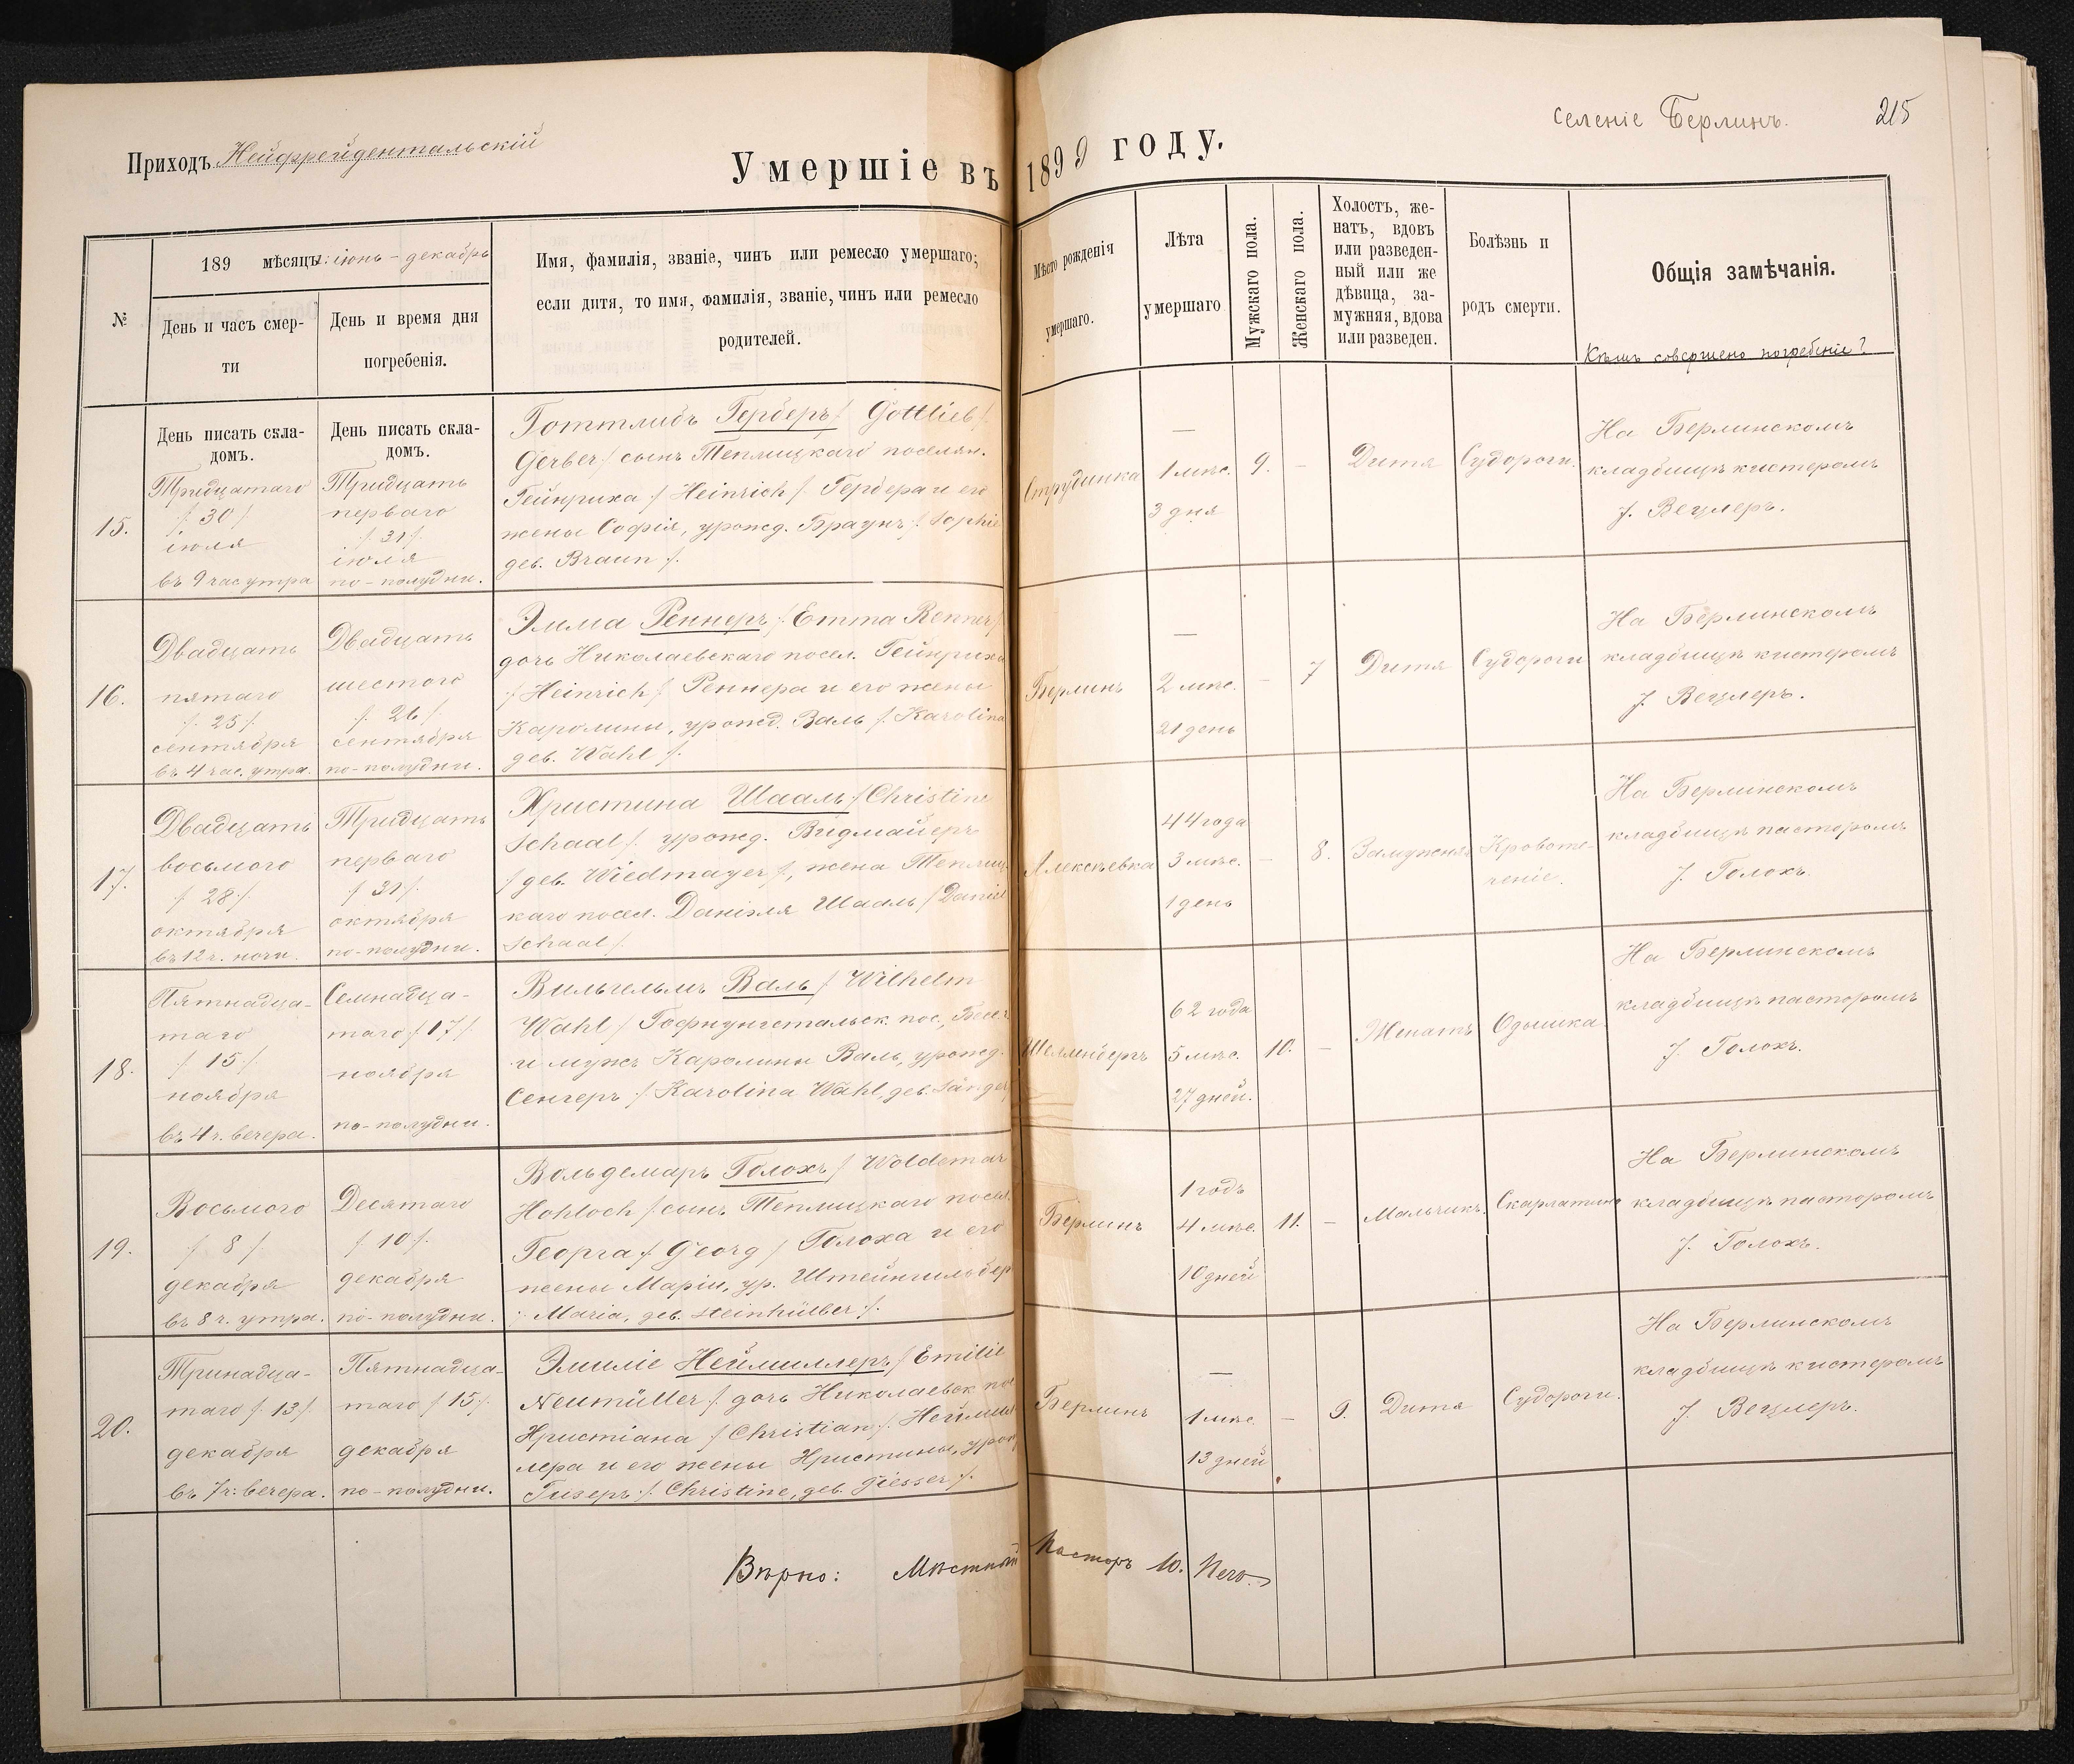 Приходъ Нейфрейдентальскій
Умершіе въ 1899 году.
селеніе Берлинъ.
215
№
189 мѣсяцы: іюнь - декабрь
День и часъ смер-
ти
День и время дня
погребенія.
Имя, фамилія, званіе, чинъ или ремесло умершаго;
если дитя, то имя, фамилія, званіе, чинъ или ремесло
родителей.
Мѣсто рожденія
умершаго.
Лѣта
умершаго
Мужскаго пола.
Женскаго пола.
Холостъ, же-
натъ, вдовъ
или разведен-
ный или же
дѣвица, за-
мужняя, вдова
или разведен.
Болѣзнь и
родъ смерти.
Общія замѣчанія.
Кѣмъ совершено погребеніе?
15.
День писать скла-
домъ.
Тридцатаго
/: 30 /:
іюля
въ 9 час утра
День писать скла-
домъ.
Тридцать
перваго
/: 31 /:
іюля
по-полудни.
Готтлибъ Герберъ /: Gottlieb
Gerber /: сынъ Теплицкаго поселян.
Гейнриха /: Heinrich /: Гербера и его
жены Софія, урожд. Браунъ /: Sophie
geb. Braun /:
Струдинка
—
1 мѣс.
3 дня
9.
-
Дитя
Судороги.
На Берлинскомъ
кладбищѣ кистеромъ
J. Вецлеръ.
16.
Двадцать
пятаго
/: 25 /:
сентября
въ 4 час. утра.
Двадцать
шестого
/: 26 /:
сентября
по-полудни.
Эмма Реннеръ /: Emma Renner /:
дочь Николаевскаго посел. Гейнриха
/: Heinrich /: Реннера и его жены
Каролины, урожд. Валь /: Karolina
geb. Wahl /:
Берлинъ
—
2 мѣс.
21 день
-
7
Дитя
Судороги
На Берлинскомъ
кладбищѣ кистеромъ
J. Вецлеръ.
17.
Двадцать
восьмого
/: 28 /:
октября
въ 12 ч. ночи.
Тридцать
перваго
/: 31 /:
октября
по-полудни.
Христина Шааль /: Christine
Schaal /: урожд. Видмайеръ
/: geb. Wiedmayer /:, жена Теплиц-
каго посел. Даніэля Шааль /: Daniel
Schaal /:
Алексѣевка
44 года
3 мѣс.
1 день
-
8.
Замужняя
Кровоте-
ченіе.
На Берлинскомъ
кладбищѣ пасторомъ
J. Голохъ.
18.
Пятнадца-
таго
/: 15 /:
ноября
въ 4 ч. вечера.
Семнадца-
таго /: 17 /:
ноября
по-полудни.
Вильгельмъ Валь /: Wilhelm
Wahl /: Гофнунгстальск. пос.,
и мужъ Каролины Валь, урожд.
Сенгеръ /: Karolina Wahl, geb. Sänger
Шелленбергъ
62 года
5 мѣс.
27 дней.
10.
-
Женатъ
Одышка.
На Берлинскомъ
кладбищѣ пасторомъ
J. Голохъ.
19.
Восьмого
/: 8 /:
декабря
въ 8 ч. утра.
Десятаго
/: 10 /:
декабря
по-полудни.
Вольдемаръ Голохъ /: Woldemar
Hohloch /: сынъ Теплицкаго посел.
Георга /: Georg /: Голоха и его
жены Маріи, ур. Штейнгильбер
: Maria, geb. Steinhülber /:
Берлинъ
1 годъ
4 мѣс.
10 дней
11.
-
Мальчикъ.
Скарлатина
На Берлинскомъ
кладбищѣ пасторомъ
J. Голохъ.
20.
Тринадца-
таго /: 13 /:
декабря
въ 7 ч: вечера.
Пятнадца-
таго /: 15 /:
декабря
по-полудни.
Эмиліе Неймиллеръ /: Emilie
Neumüller /: дочь Николаевск пос
Христіана /: Christian /: Неймил
лера и его жены Христины, урож
Гизеръ /: Christine, geb. Giesser /:
Берлинъ
—
1 мѣс.
13 дней
-
9.
Дитя
Судороги.
На Берлинскомъ
кладбищѣ кистеромъ
J. Вецлеръ.
Вѣрно: Мѣстный Пасторъ Ю.